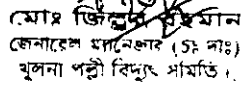 মোঃ জিল্লুর রহমান
জেনারেল ম্যানেজার (চঃ দাঃ)
খুলনা পল্লী বিদ্যুৎ সমিতি।